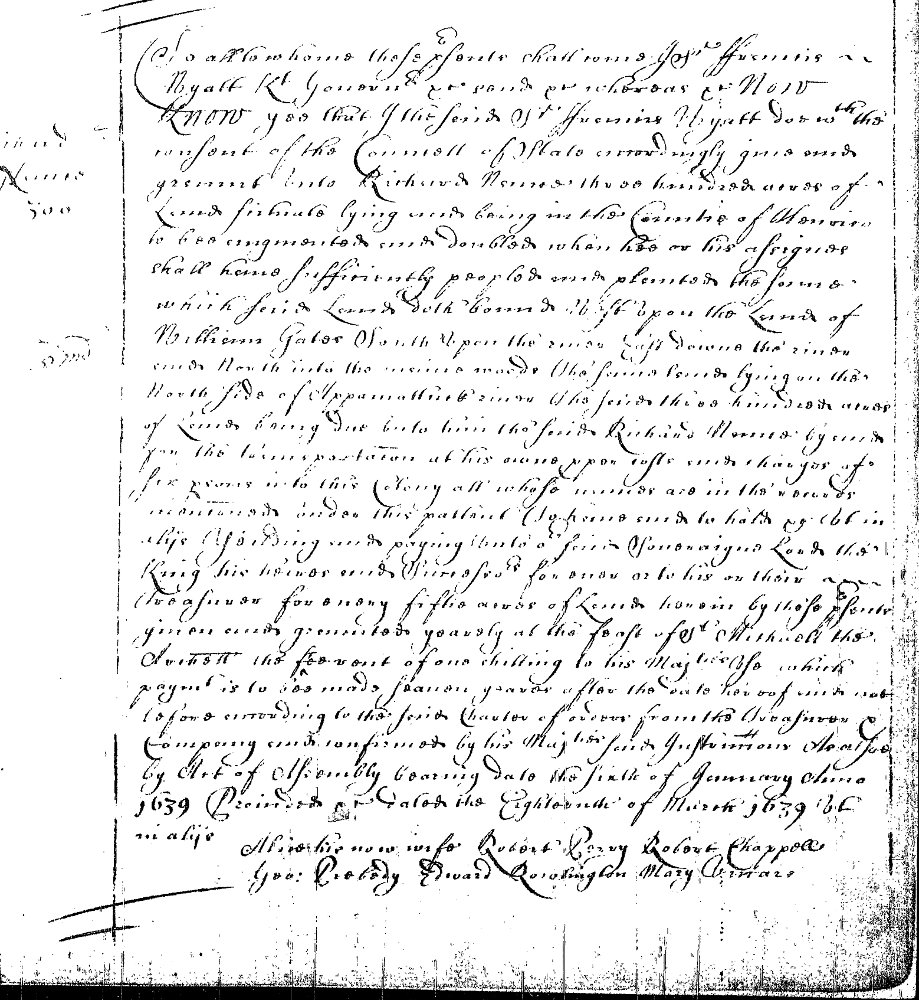 To all to whome these psents shall come I Sr Francis
Wyatt Kt Governr &c send &c whereas &c Now
Know yee that I the said Sr Francis Wyatt doe wth the
consent of the Councell of State accordingly give and
graunt unto Richard Nance three hundred acres of
Nance
300
Land situate lying and being in the Countie of Henrico
to bee augmented and doubled when hee or his assignes
shall have sufficiently peopled and planted the same
which said Land doth bound West upon the Land of
William Gates South upon the river East downe the river
and North into the maine woods the same land lying on the
North side of Appamattuck river the said three hundred acres
of Land being due unto him the said Richard Nance by and
for the transportacon at his owne pper costs and charges of
six psons into this Colony all whose names are in the records
mentioned under this pattent To have and to hold &c Ut in
alijs Yeilding and paying unto or said Soveraigne Lord the
King his heires and Successrs for ever or to his or their
Treasurer for every fiftie acres of Land herein by these psents
given and graunted yearely at the feast of St Michaell the
Archell the fee rent of one shilling to his Majties Use which
paymt is to bee made seaven yeares after the date hereof and not
before according to the said Charter of orders from the Treasurer &
Company and confirmed by his Majties said Instructions As alsoe
by Act of Assembly bearing date the sixth of January Anno
1639 Provided &c Dated the Eighteenth of March 1639 Ut
in alijs
Alice his now wife Robert Perry Robert Chappell
Geo: Peebody Edward Rowlington Mary